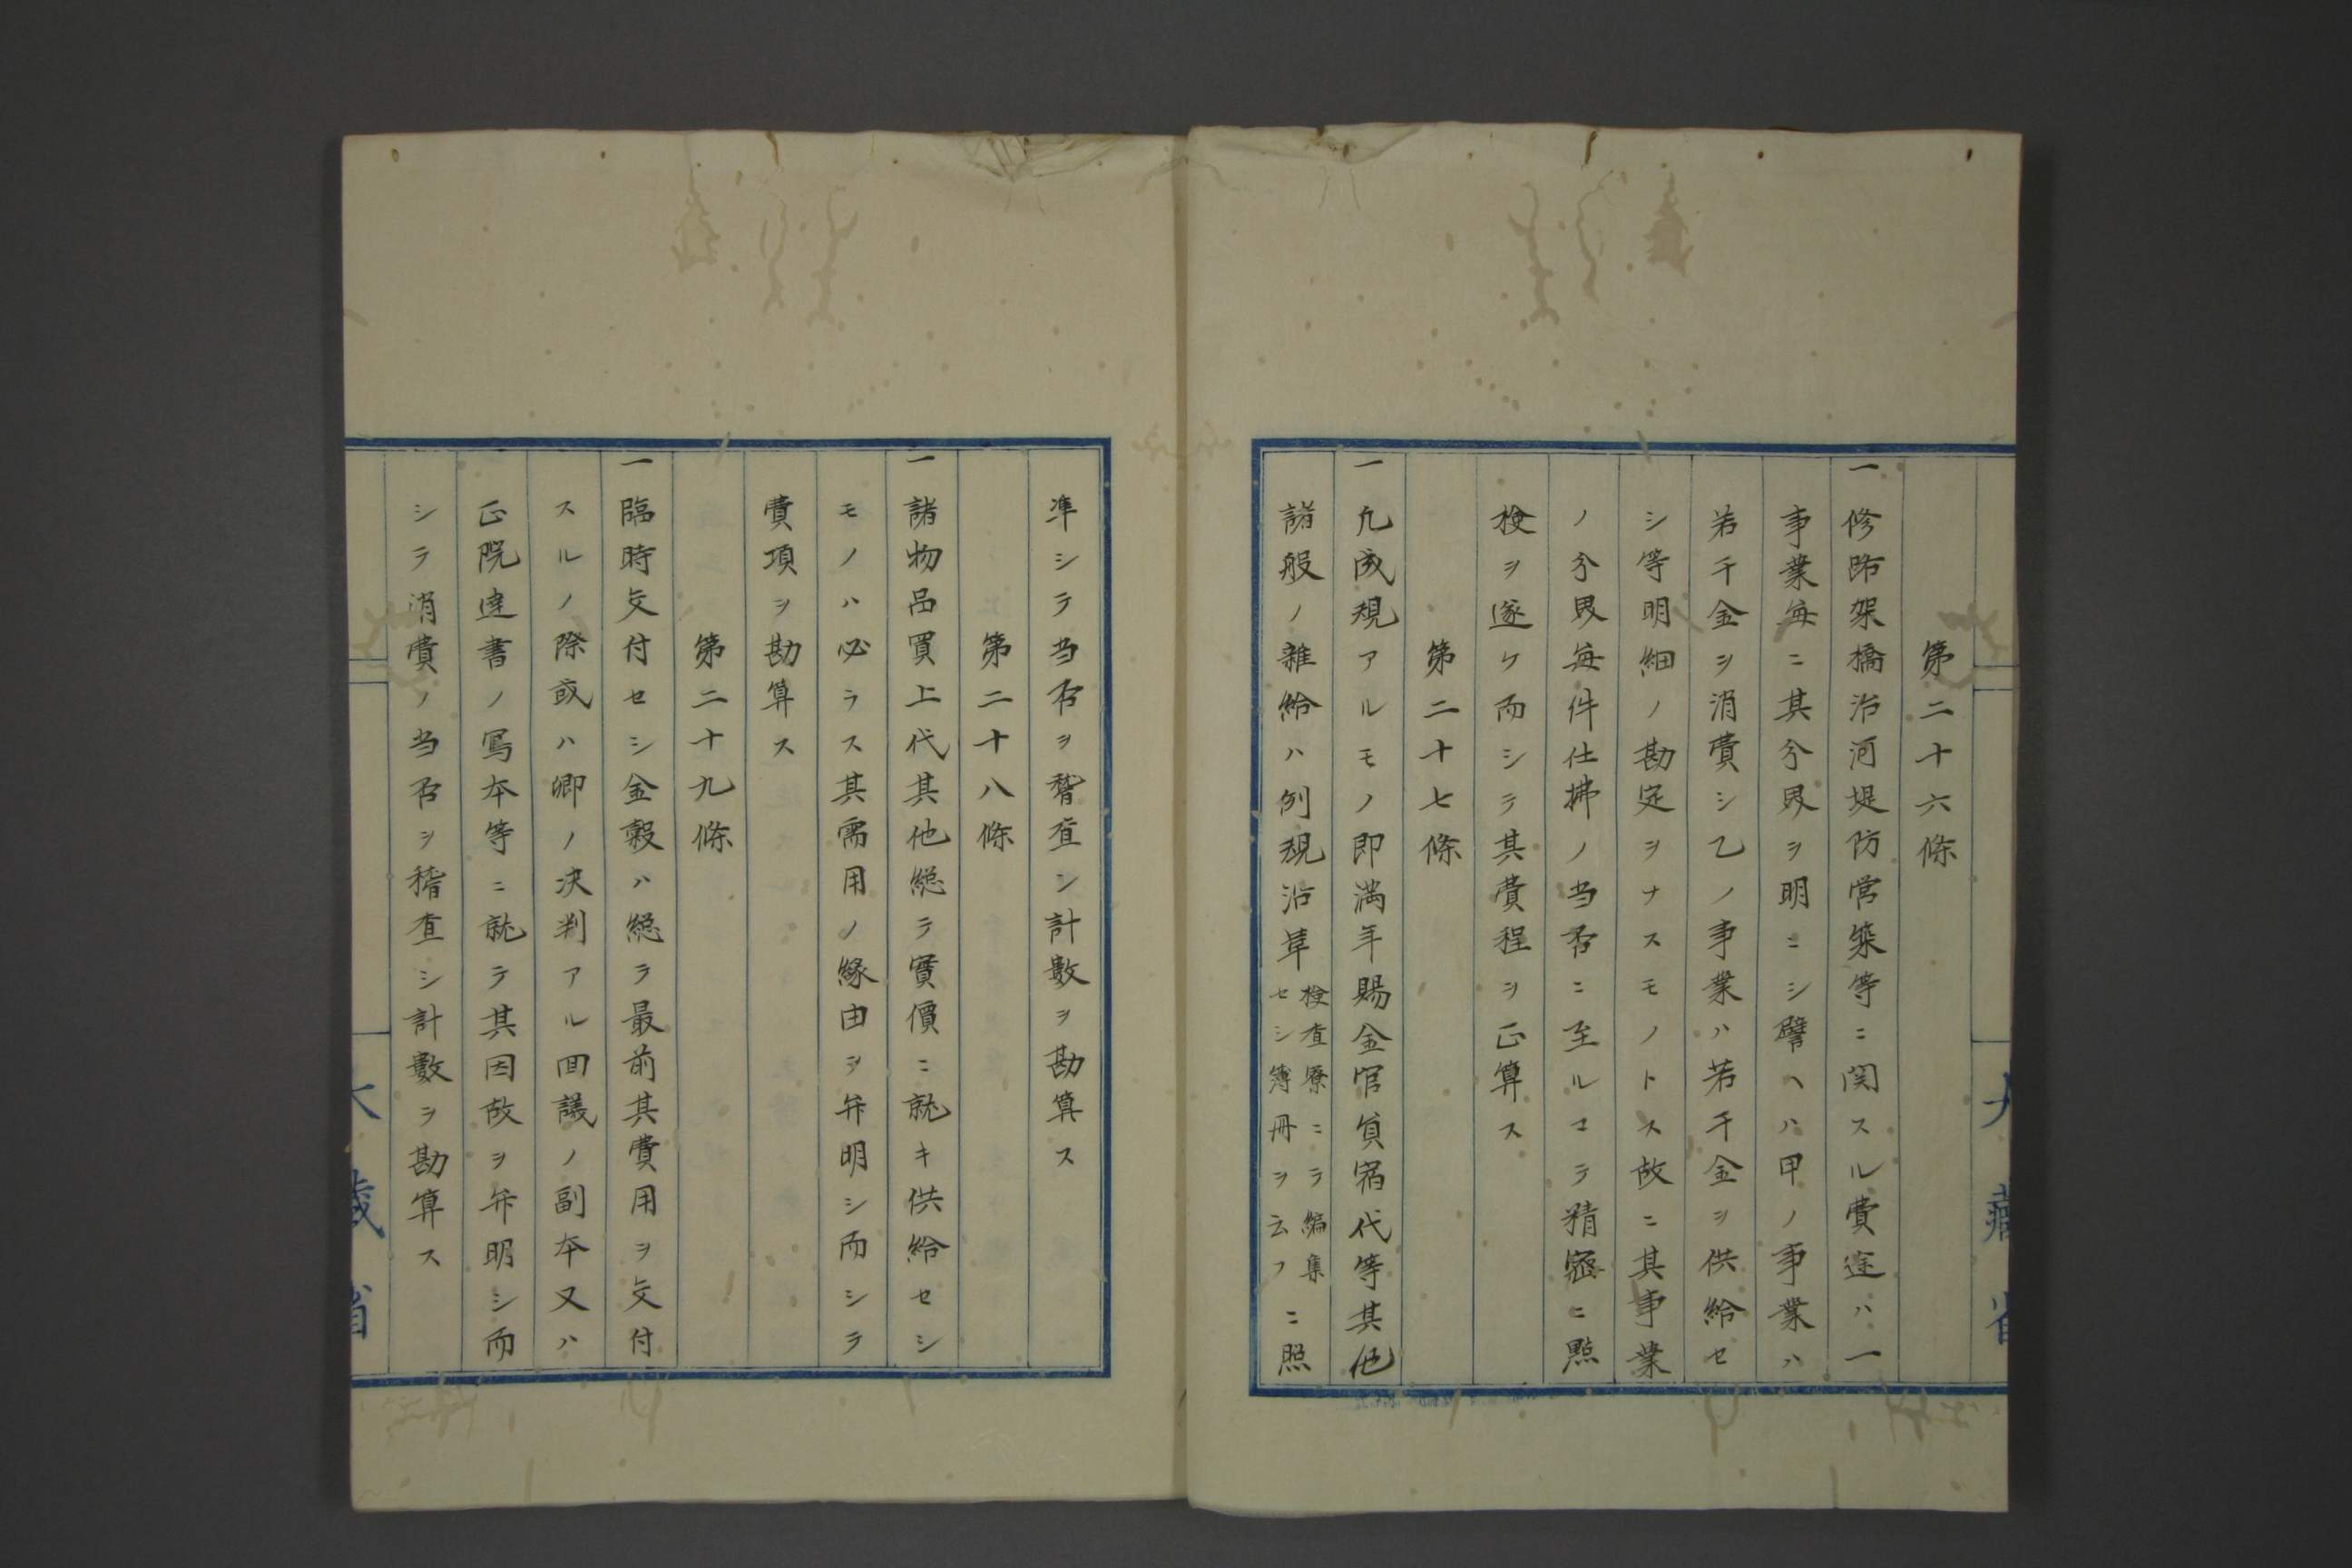 第二十六條
一修路架橋治河堤防営築等ニ関スル費途ハ一
事業毎ニ其分界ヲ明ニシ譬ヘハ甲ノ事業ハ
若干金ヲ消費シ乙ノ事業ハ若干金ヲ供給セ
シ等明細ノ勘定ヲナスモノトス故ニ其事業
ノ分界毎件仕拂ノ当否ニ至ルマテ精密ニ點
検ヲ遂ケ而シテ其費程ヲ正算ス
第二十七條
一凡成規アルモノ即満年賜金官員宿代等其他
諸般ノ雑給ハ例規沿革検査寮ニテ編集セシ簿冊ヲ云フニ照
大藏省
準シテ当否ヲ稽査シ計數ヲ勘算ス
第二十八條
一諸物品買上代其他総テ實價ニ就キ供給セシ
モノハ必ラス其需用ノ縁由ヲ弁明シ而シテ
費項ヲ勘算ス
第二十九條
一臨時交付セシ金穀ハ総テ最前其費用ヲ交付
スルノ際或ハ卿ノ决判アル回議ノ副本又ハ
正院達書ノ写本等ニ就テ其因故ヲ弁明シ而
シテ消費ノ当否ヲ稽査シ計數ヲ勘算ス
大藏省